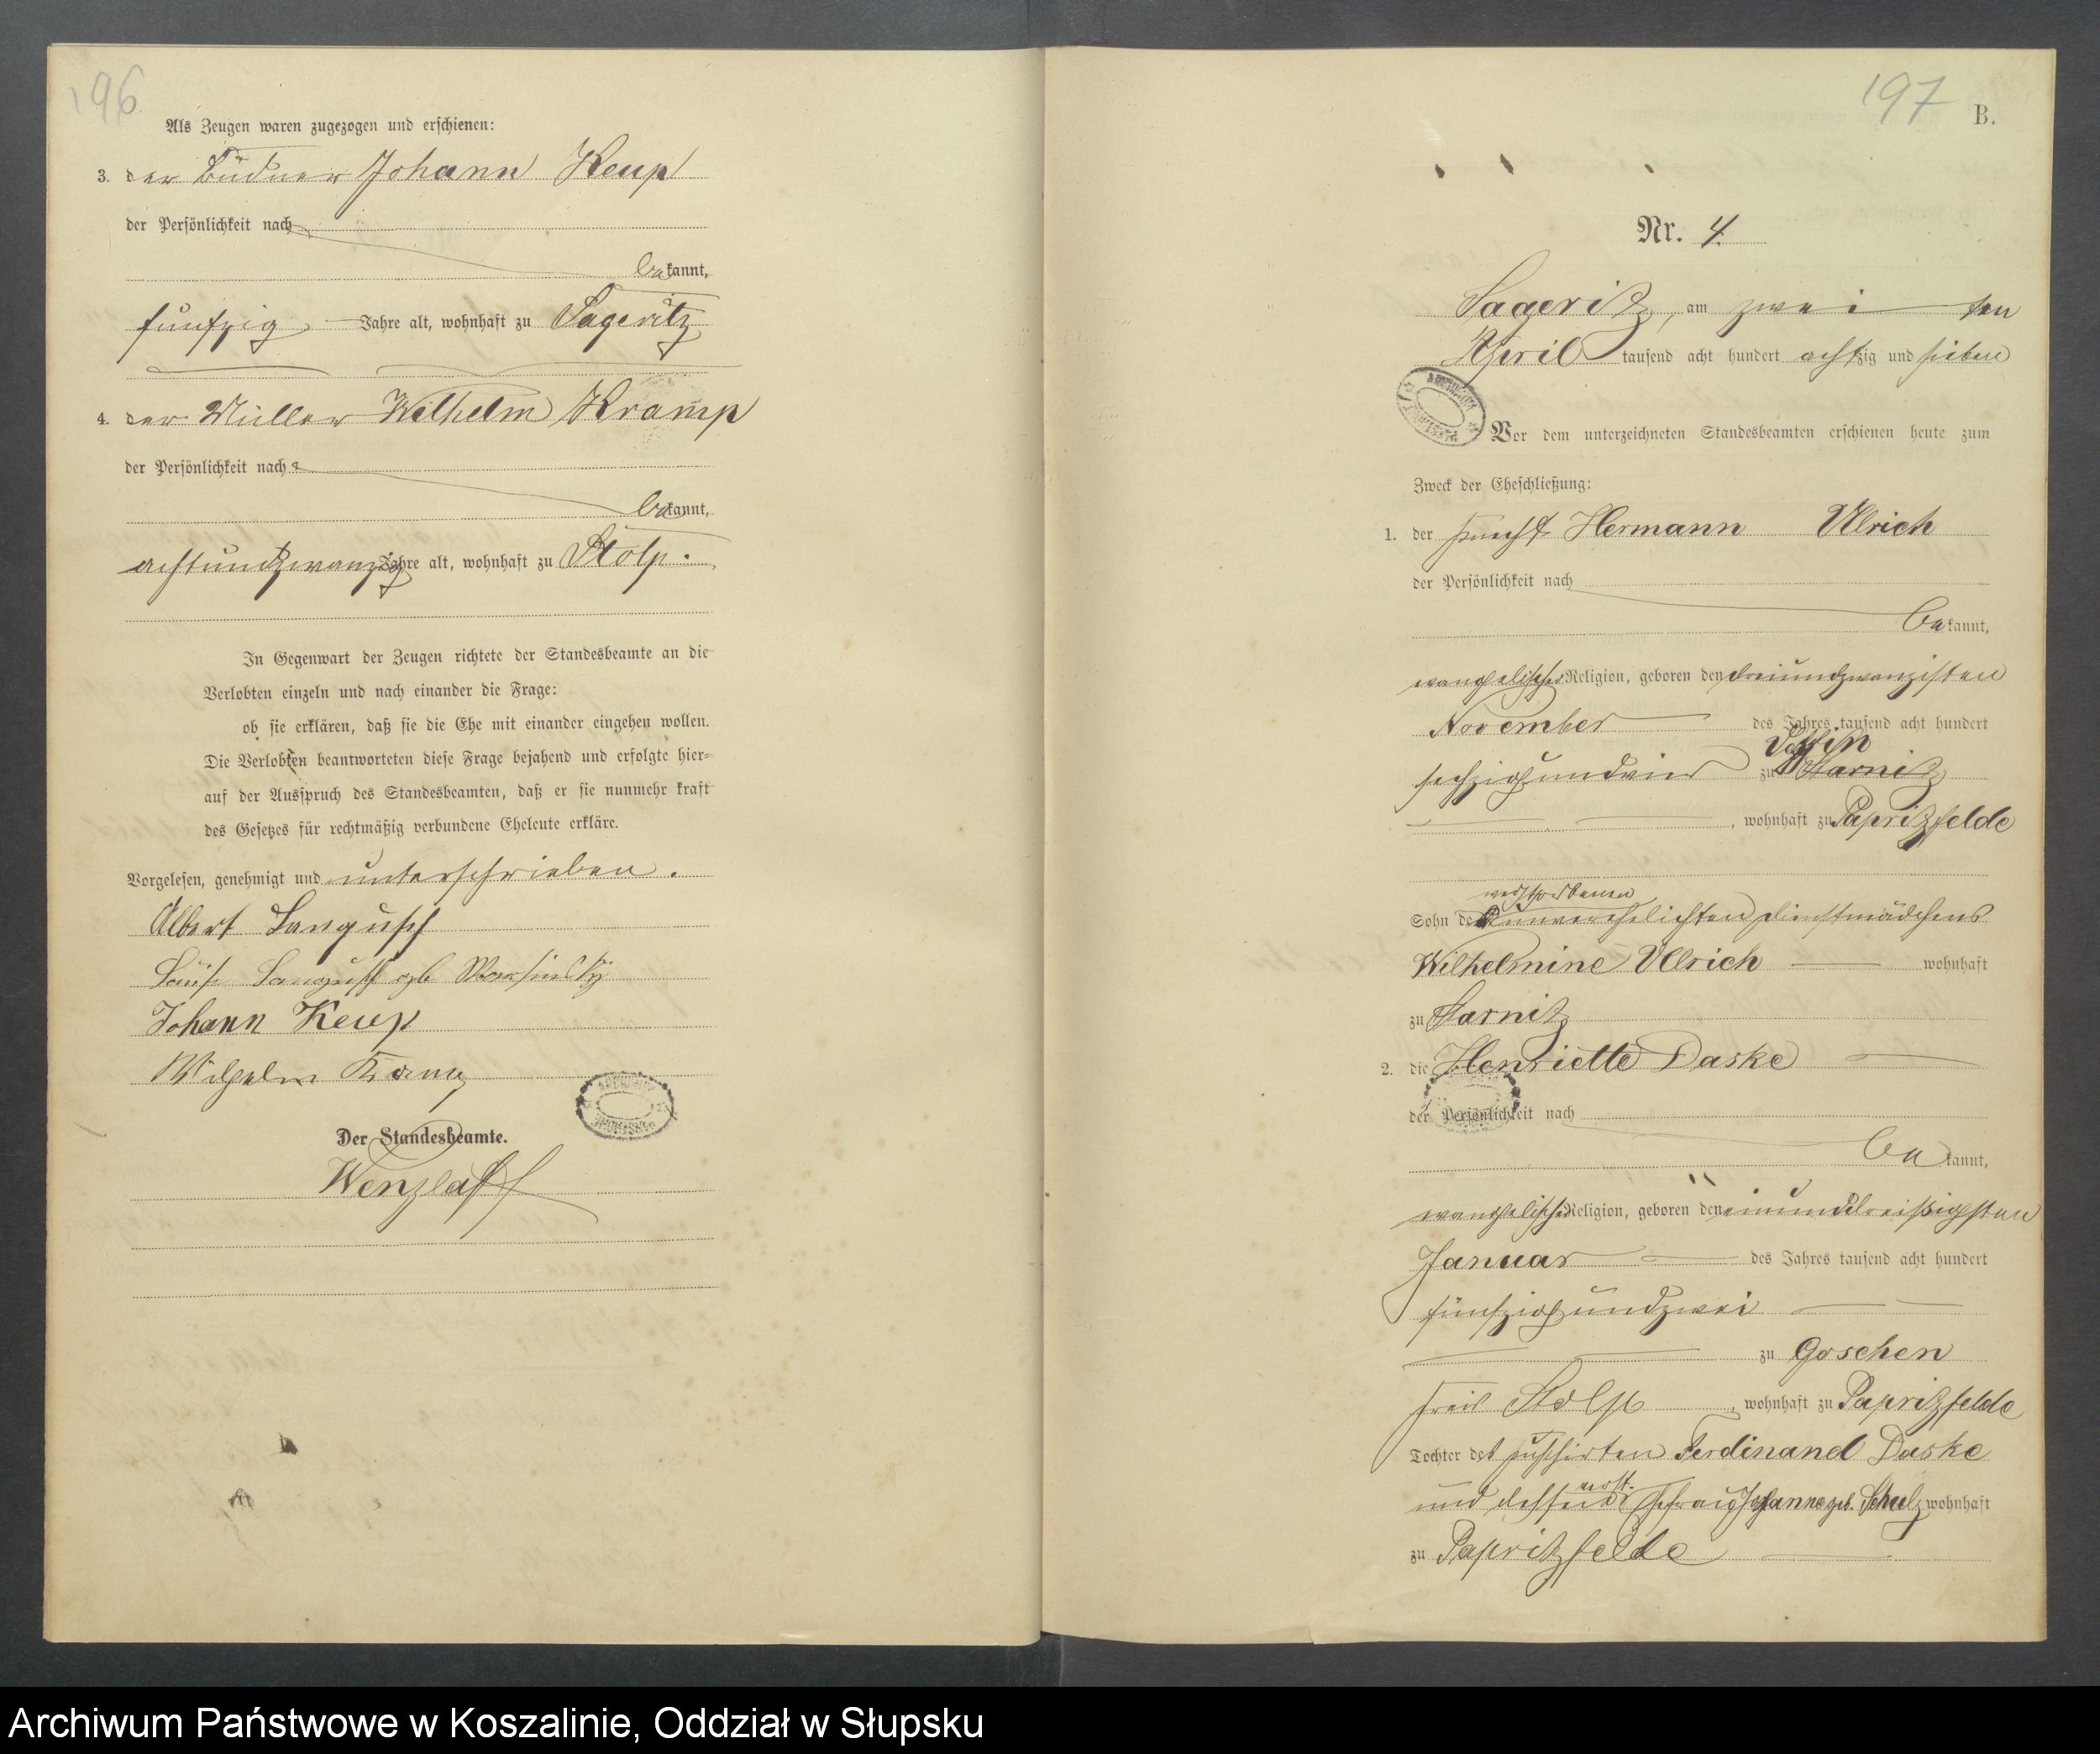 196
Als Zeugen waren zugezogen und erschienen:
3. der Büdner Johann Keup
der Persönlichkeit nach
bekannt,
funfzig Jahre alt, wohnhaft zu Sageritz
4. der Müller Wilhelm Kramp
der Persönlichkeit nach
bekannt,
achtundzwanzig Jahre alt, wohnhaft zu Stolp.
In Gegenwart der Zeugen richtete der Standesbeamte an die
Verlobten einzeln und nach einander die Frage:
ob sie erklären, daß sie die Ehe mit einander eingehen wollen.
Die Verlobten beantworteten diese Frage bejahend und erfolgte hier-
auf der Ausspruch des Standesbeamten, daß er sie nunmehr kraft
des Gesetzes für rechtmäßig verbundene Eheleute erkläre.
Vorgelesen, genehmigt und unterschrieben.
Albert Langusch
Langusch geb
Johann Keup
Wilhelm Kramp
Der Standesbeamte.
Wenzlaff
197
B.
Nr. 4.
Sageritz, am zwei ten
April tausend acht hundert achtzig und sieben
Vor dem unterzeichneten Standesbeamten erschienen heute zum
Zweck der Eheschließung:
1. der Knecht Hermann Ulrich
der Persönlichkeit nach
bekannt,
evangelischer Religion, geboren den dreiundzwanzisten
November des Jahres tausend acht hundert
sechzig und vier zu Starnitz
, wohnhaft zu Papritzfelde
verstorbenen
Sohn der unverehelichten Dienstmädchens
Wilhelmine Ullrich wohnhaft
zu Starnitz
2. die Henriette Daske
der Persönlichkeit nach
bekannt,
evangelischer Religion, geboren den einunddreißigsten
Januar des Jahres tausend acht hundert
fünfzig und zwei
zu Goschen
Kreis Stolp, wohnhaft zu Papritzfelde
Tochter des Kuhhirten Ferdinand Daske
verst.
und dessen Ehefrau Johanne geb. Schulz wohnhaft
zu Papritzfelde
Archiwum Państwowe w Koszalinie, Oddział w Słupsku